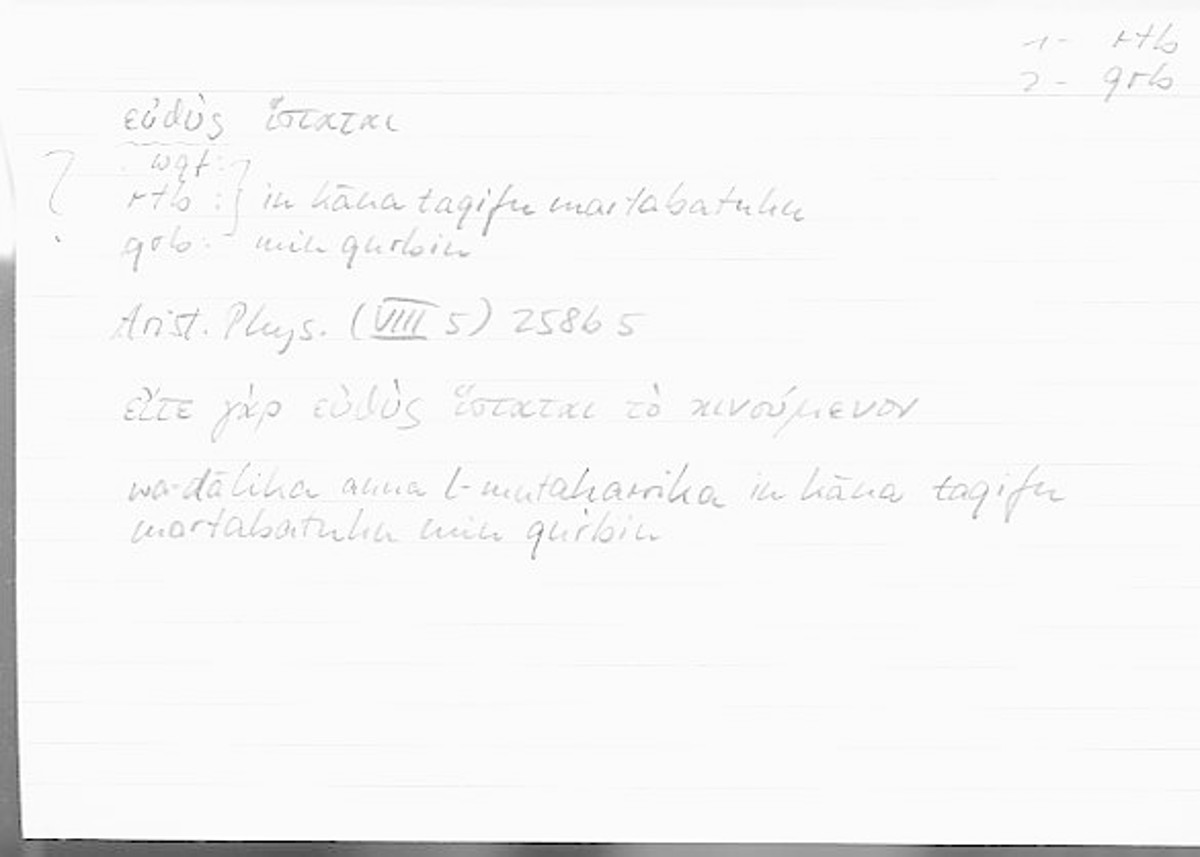 1- rtb
2- qrb
εὐθὺς ἵσταται
wqf:
? rtb : } in kāna taqifu martabatuhu
qrb: min qurbin
Arist. Phys. (VIII 5) 258b 5
εἴτε γὰρ εὐθὺς ἵσταται τὸ κινούμενον
wa-dālika anna l-mutaharrika in kāna taqifu
martabatuhu min qurbin